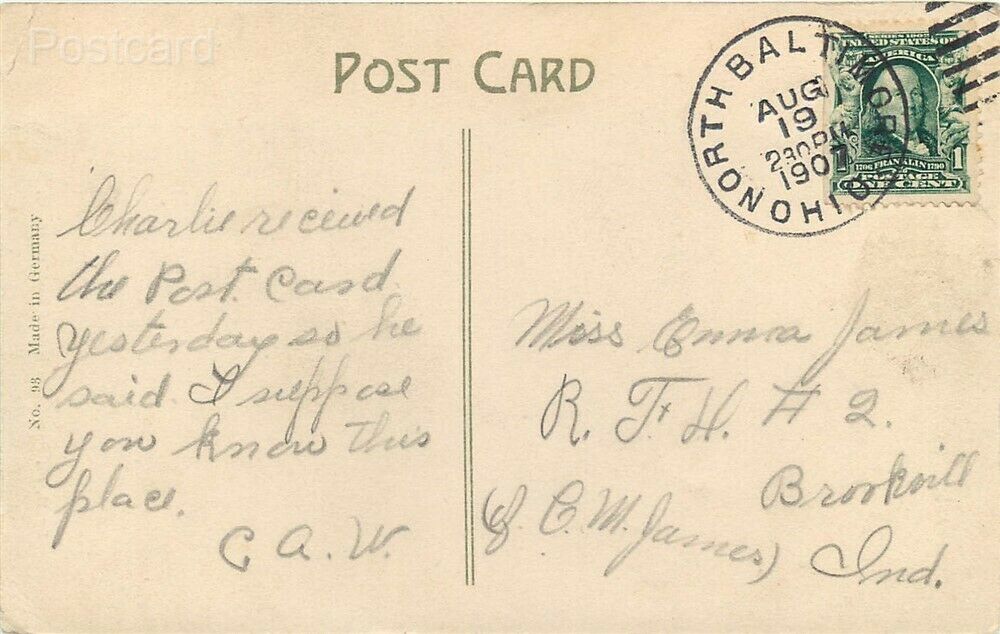 Postcard
POST CARD
NORTH BALTIMORE OHIO
AUG
19
230PM
1907
SERIES 1902
UNITED STATES OF
AMERICA
1706 FRANKLIN 1790
POSTAGE
ONE CENT
1
No. 98 Made in Germany
Charlie recieved
the Post. Card.
yesterday so he
said. I suppose
you know this
place.
C. A. W.
Miss Emma James
R. F. D. # 2.
Brookvill
C. M. James) Ind.